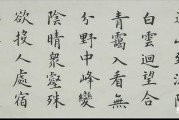 連山到海
白雲迴望合
青靄入看無
分野中峰變
陰晴衆壑殊
欲投人處宿